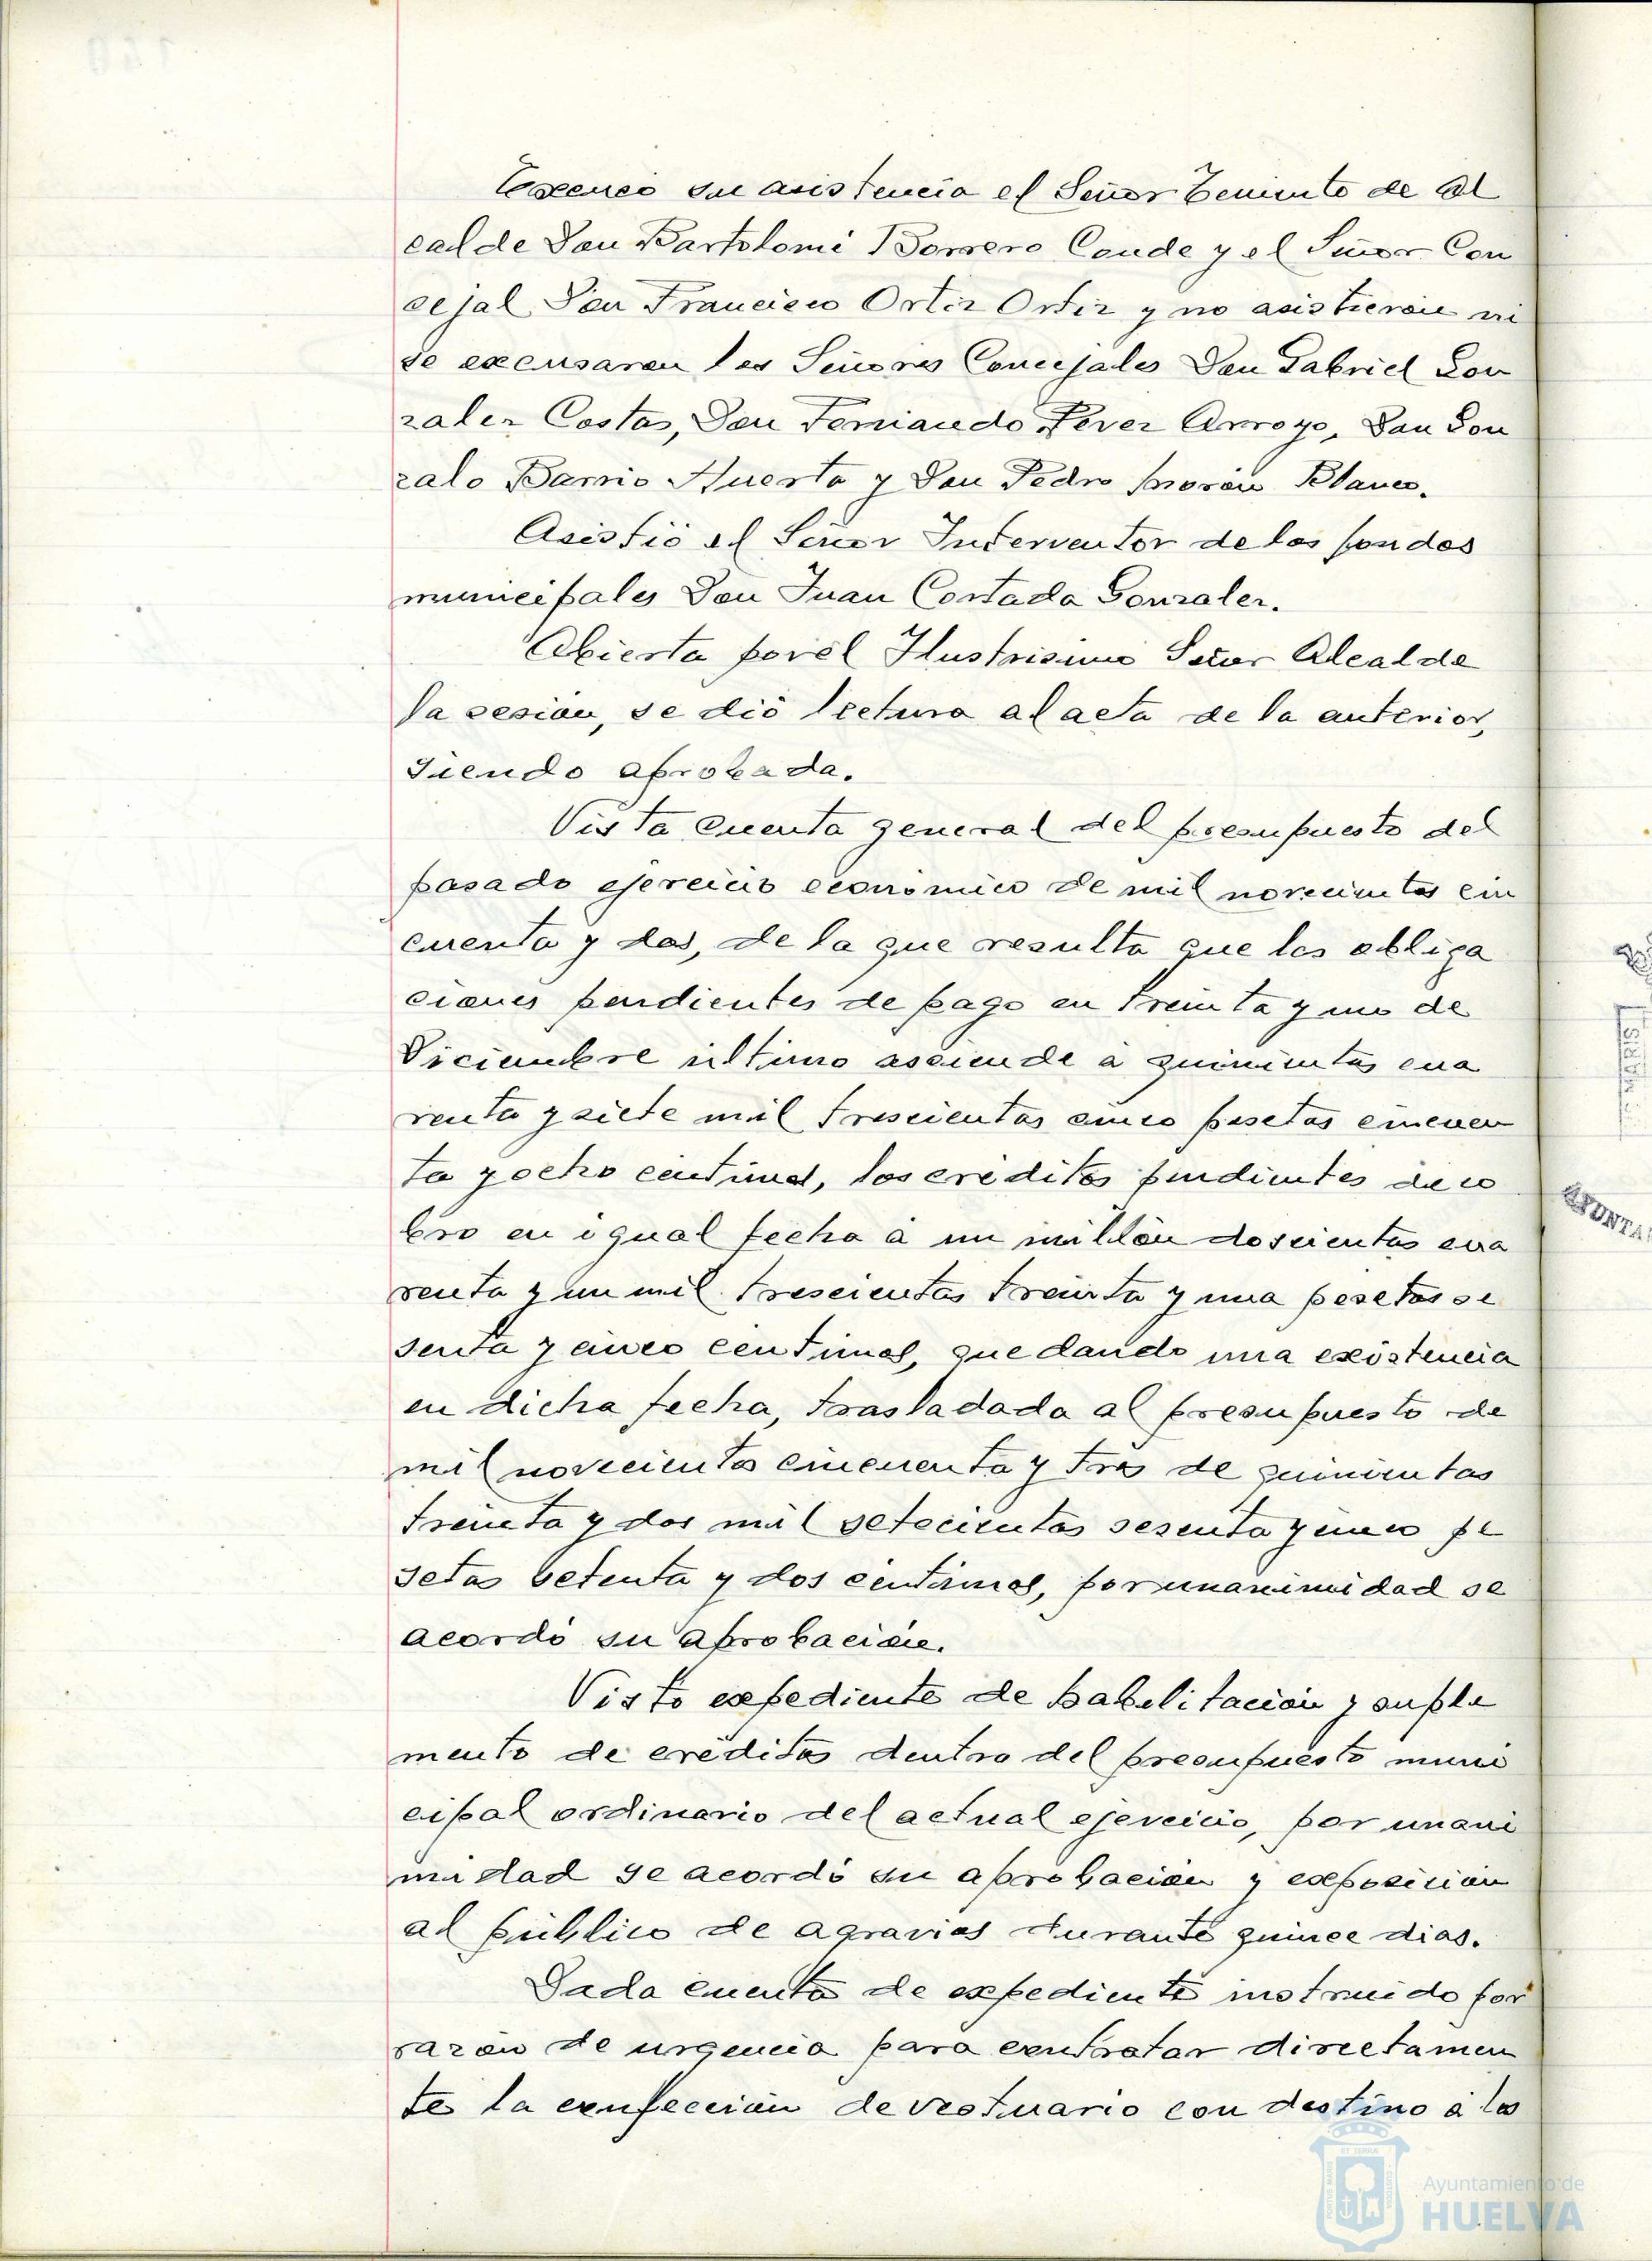 Excusó su asistencia el Señor Teniente de Al
calde Don Bartolomé Borrero Conde y el Señor Con
cejal Don Francisco Ortiz Ortiz y no asistieron ni
se excusaron los Señores Concejales Don Gabriel Gon
zalez Costas, Don Fernando Perez Arroyo, Don Gon
zalo Barrio Huerta y Don Pedro Morón Blanco.
Asistió el Señor Interventor de los fondos
municipales Don Juan Cortada Gonzalez.
Abierta por el Ilustrisimo Señor Alcalde
la sesión, se dió lectura al acta de la anterior,
siendo aprobada.
Vista cuenta general del presupuesto del
pasado ejercicio económico de mil novecientos cin
cuenta y dos, de la que resulta que las obliga
ciones pendientes de pago en treinta y uno de
Diciembre último asciende á quinientas cua
renta y siete mil trescientas cinco pesetas cincuen
ta y ocho centimos, los créditos pendientes de co
bro en igual fecha á un millón doscientas cua
renta y un mil trescientas treinta y una pesetas se
senta y cinco centimos, quedando una existencia
en dicha fecha, trasladada al presupuesto de
mil novecientos cincuenta y tres de quinientas
treinta y dos mil setecientas sesenta y cinco pe
setas setenta y dos centimos, por unanimidad se
acordó su aprobación.
Visto expediente de habilitación y suple
mento de créditos dentro del presupuesto muni
cipal ordinario del actual ejercicio, por unani
midad se acordó su aprobación y exposición
al público de agravios durante quince dias.
Dada cuenta de expediente instruido por
razón de urgencia para contratar directamen
te la confección de vestuario con destino á los
AYUNTA
Ayuntamiento de
HUELVA